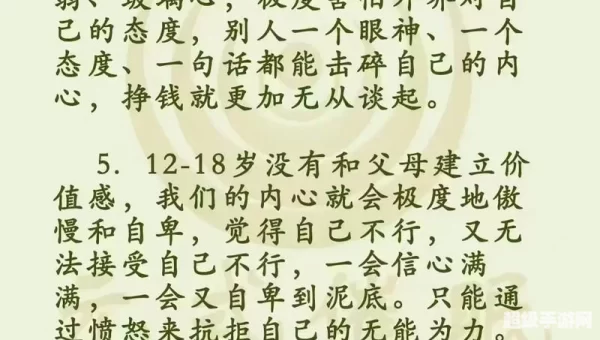 弱、玻璃心，极度害怕外界对自
己的态度，别人一个眼神、一个
态度、一句话都能击碎自己的内
心，挣钱就更加无从谈起。
5. 12-18岁没有和父母建立价
值感，我们的内心就会极度地傲
慢和自卑，觉得自己不行，又无
法接受自己不行，一会信心满
满，一会又自卑到泥底。只能通
过愤怒来抗拒自己的无能为力。
超级手游网